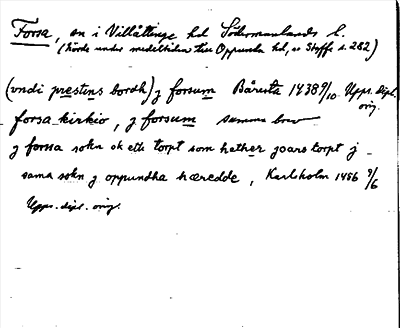 Forsa, sn i Villåttinge hd Södermanlands l.
(hörde under medeltiden till Oppunda hd, se Styffe s. 282)
(vndi prestens bordh) j forsum Bärsta 1438 9/10 Upps. dipl. orig.
forsa kirkio, j forsum samma brev
j forssa sokn ok ett torpt som hether joarstorpt j
sama sokn j oppundha hæredde, Karlsholm 1456 9/6
Upps. dipl. orig.